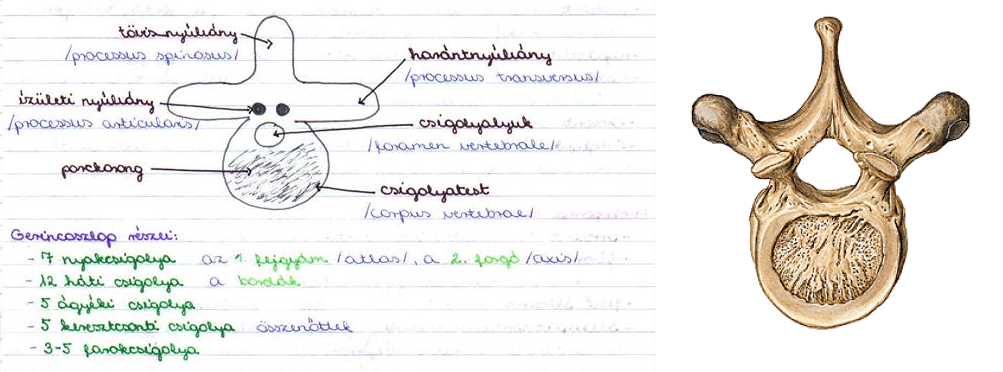 tövis nyúlvány
/processus spinosus/
harántnyúlvány
/processus transversus/
ízületi nyúlvány
/processus articularis/
csigolyalyuk
/foramen vertebrale/
porckorong
csigolyatest
/corpus vertebrae/
Gerincoszlop részei:
- 7 nyakcsigolya az 1. fejgyám /atlas/, a 2. forgó /axis/
- 12 háti csigolya a bordák
- 5 ágyéki csigolya
- 5 keresztcsonti csigolya összenőttek
- 3-5 farokcsigolya